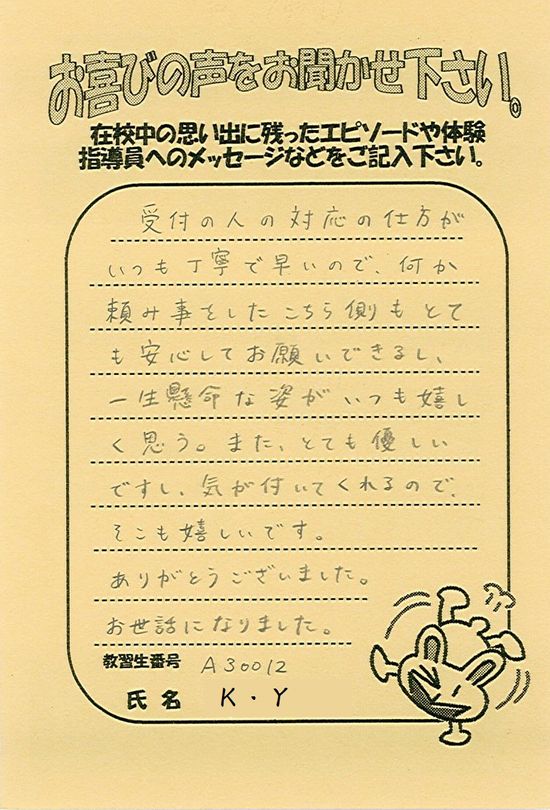 お喜びの声をお聞かせ下さい。
在校中の思い出に残ったエピソードや体験
指導員へのメッセージなどをご記入下さい。
受付の人の対応の仕方が
いつも丁寧で早いので、何か
頼み事をしたこちら側もとて
も安心してお願いできるし、
一生懸命な姿がいつも嬉し
く思う。また、とても優しい
ですし、気が付いてくれるので、
そこも嬉しいです。
ありがとうございました。
お世話になりました。
教習生番号 A30012
氏名 K・Y